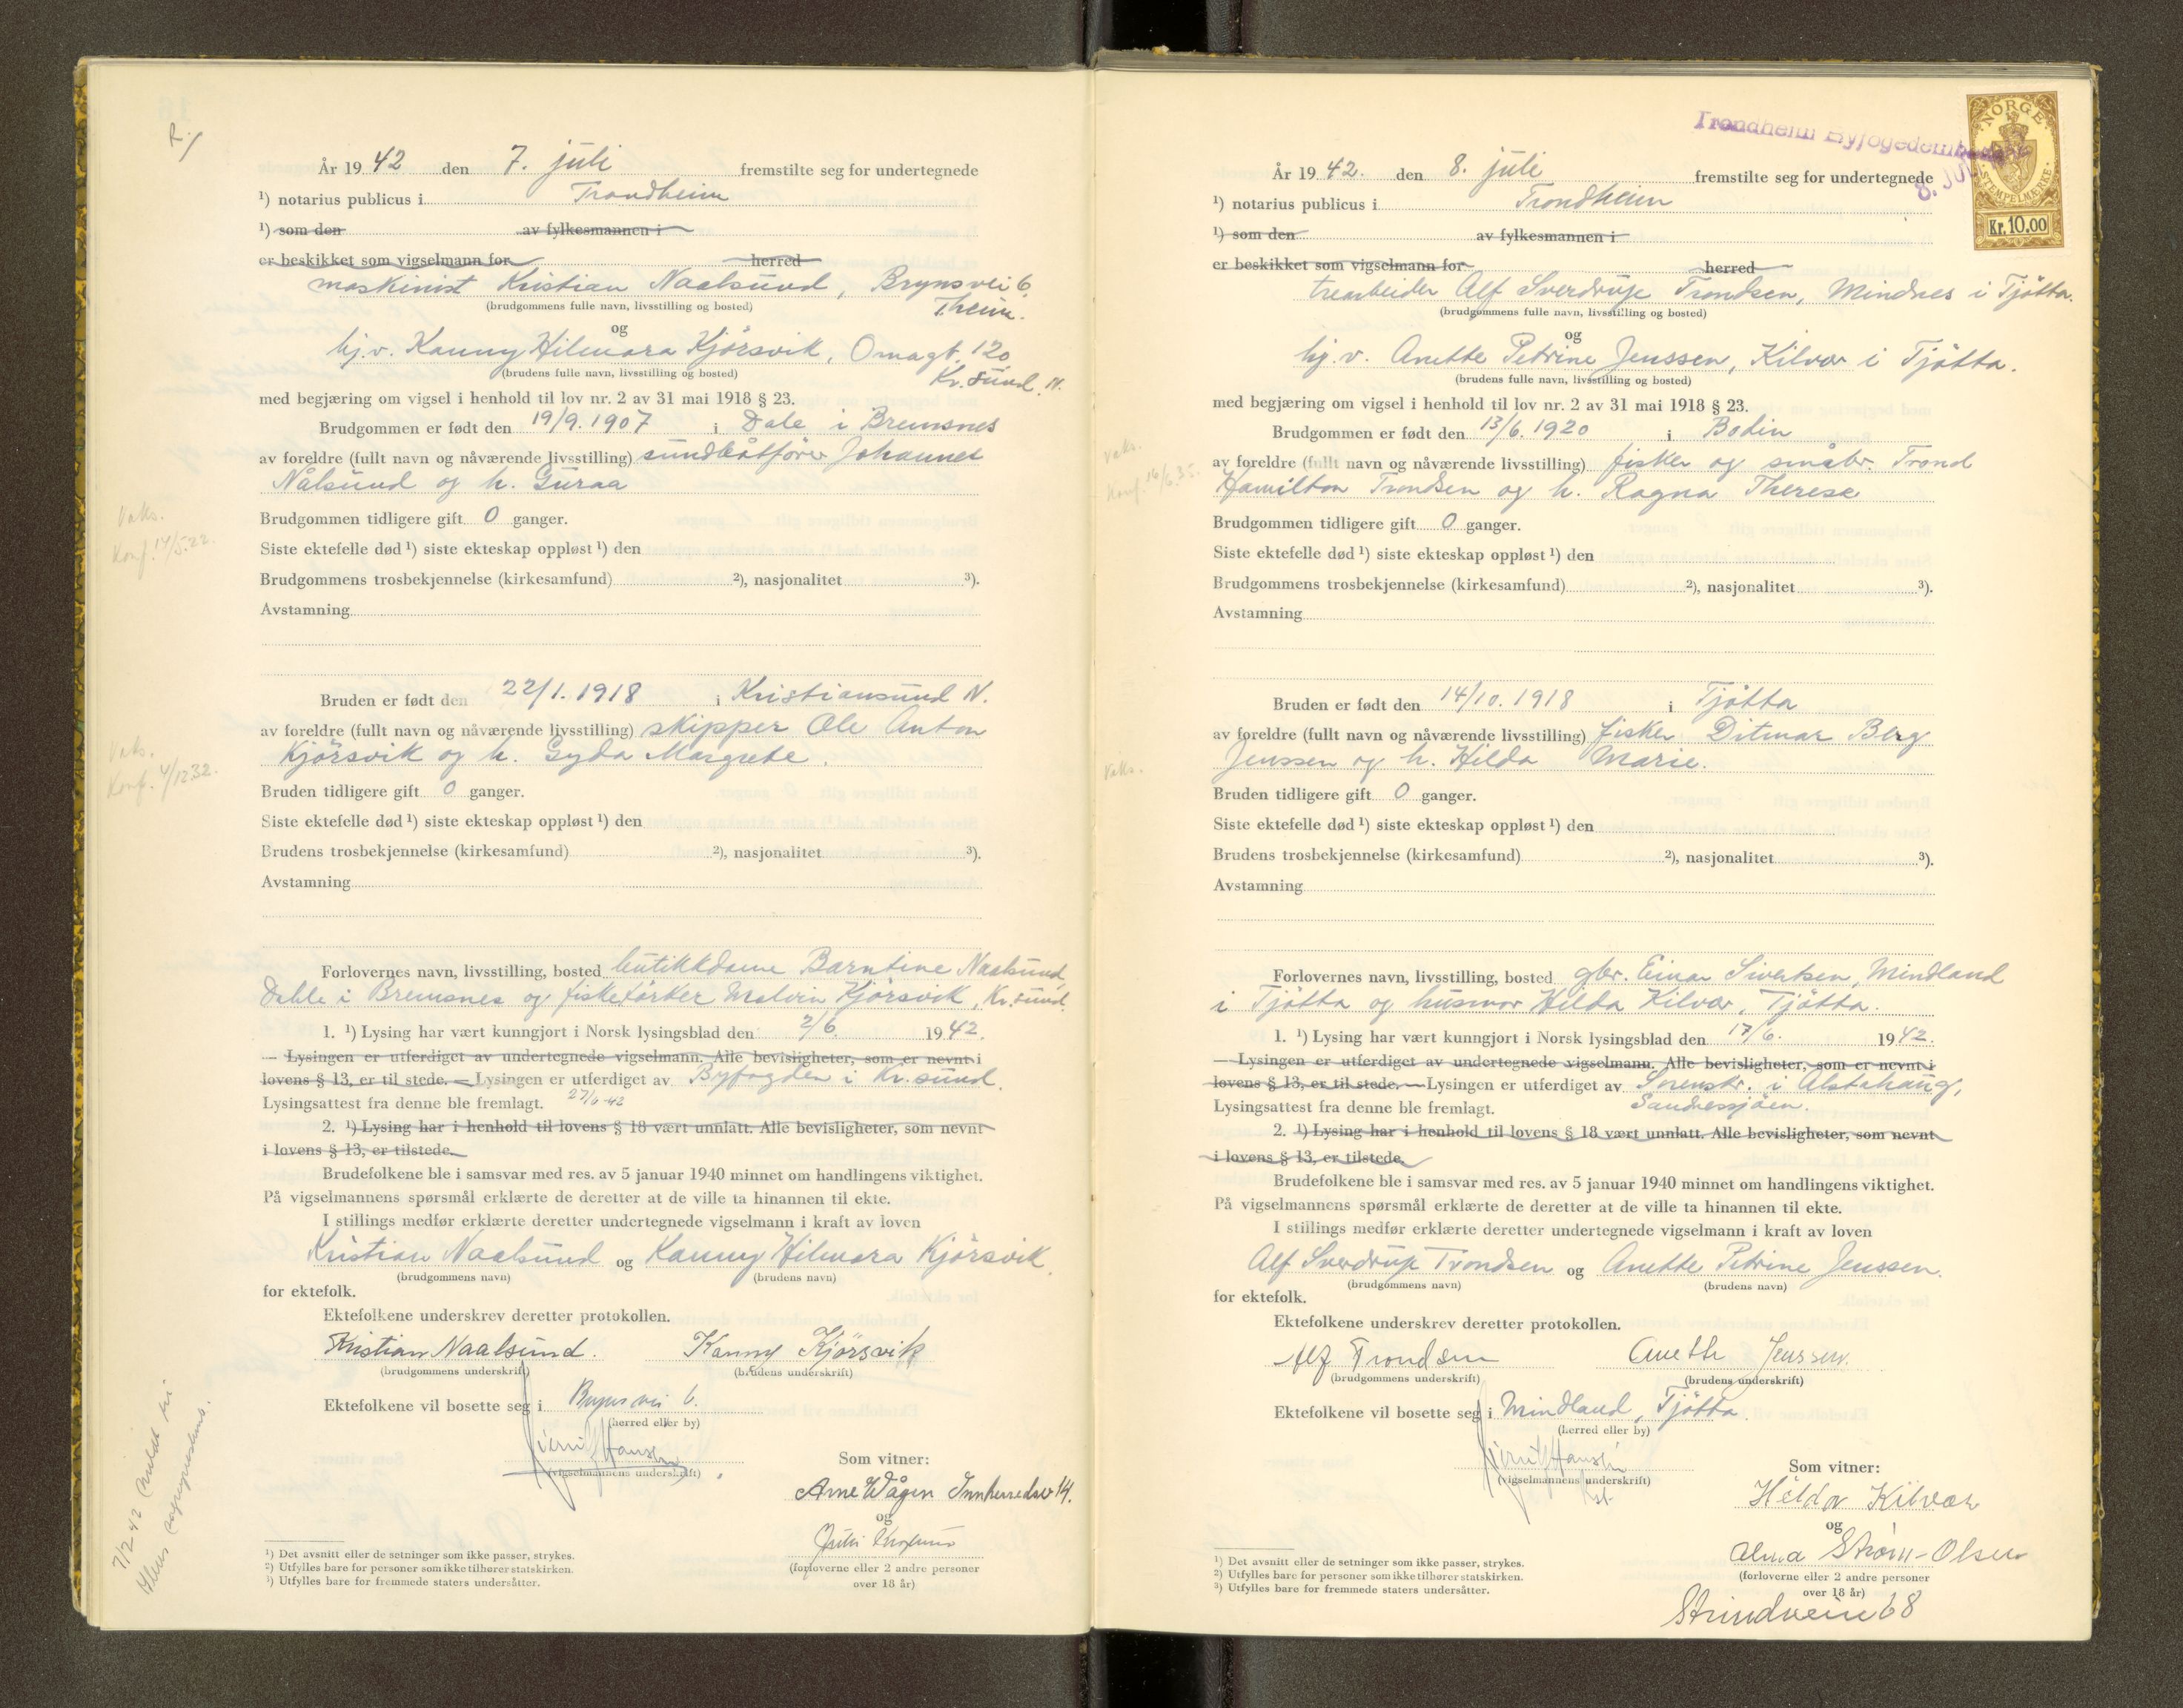 R./
År 1942 den 7. juli fremstilte seg for undertegnede
¹) notarius publicus i Trondheim
¹) som den av fylkesmannen i
er beskikket som vigselmann for herred
maskinist Kristian Naalsund, Brynsvei 6
(brudgommens fulle navn, livsstilling og bosted)
T.heim.
og
hj.v. Kanny Hilmara Kjörsvik, Omagt. 120
(brudens fulle navn, livsstilling og bosted)
Kr.sund N.
med begjæring om vigsel i henhold til lov nr. 2 av 31 mai 1918 § 23.
Brudgommen er født den 19/9. 1907 i Dale i Bremsnes
av foreldre (fullt navn og nåværende livsstilling) sundbåtfører Johannes
Nålsund og h. Guraa
Vaks.
Konf. 14/5.22.
Brudgommen tidligere gift 0 ganger.
Siste ektefelle død ¹) siste ekteskap oppløst ¹) den
Brudgommens trosbekjennelse (kirkesamfund) ²), nasjonalitet ³).
Avstamning
Bruden er født den 22/1. 1918 i Kristiansund N.
av foreldre (fullt navn og nåværende livsstilling) skipper Ole Anton
Kjörsvik og h. Gyda Margrete.
Vaks.
Konf. 4/12 32.
Bruden tidligere gift 0 ganger.
Siste ektefelle død ¹) siste ekteskap oppløst ¹) den
Brudens trosbekjennelse (kirkesamfund) ²), nasjonalitet ³).
Avstamning
Forlovernes navn, livsstilling, bosted butikkdame Barntine Naalsund,
Dahle i Bremsnes og fisketörker Malvin Kjörsvik, Kr.sund.
1. ¹) Lysing har vært kunngjort i Norsk lysingsblad den 2/6. 1942.
— Lysingen er utferdiget av undertegnede vigselmann. Alle bevisligheter, som er nevnt i
lovens § 13, er til stede. — Lysingen er utferdiget av Byfogden i Kr.sund.
Lysingsattest fra denne ble fremlagt. 27/6-42
2. ¹) Lysing har i henhold til lovens § 18 vært unnlatt. Alle bevisligheter, som nevnt
i lovens § 13, er tilstede.
Brudefolkene ble i samsvar med res. av 5 januar 1940 minnet om handlingens viktighet.
På vigselmannens spørsmål erklærte de deretter at de ville ta hinannen til ekte.
I stillings medfør erklærte deretter undertegnede vigselmann i kraft av loven
Kristian Naalsund og Kanny Hilmara Kjörsvik.
(brudgommens navn) (brudens navn)
for ektefolk.
Ektefolkene underskrev deretter protokollen.
Kristian Naalsund. Kanny Kjörsvik
(brudgommens underskrift) (brudens underskrift)
Ektefolkene vil bosette seg i Brynsvei 6.
(herred eller by)
Hansen
(vigselmannens underskrift)
Som vitner:
Arne Wågen Innherredsv 14.
og
(forloverne eller 2 andre personer
over 18 år)
7/2-42 meldt til
¹) Det avsnitt eller de setninger som ikke passer, strykes.
²) Utfylles bare for personer som ikke tilhører statskirken.
³) Utfylles bare for fremmede staters undersåtter.
Trondheim Byfogedembede
8. JUL
NORGE
STEMPELMERKE
Kr. 10.00
År 1942. den 8. juli fremstilte seg for undertegnede
¹) notarius publicus i Trondheim
¹) som den av fylkesmannen i
er beskikket som vigselmann for herred
trearbeider Alf Sverdrup Trondsen, Mindnes i Tjötta.
(brudgommens fulle navn, livsstilling og bosted)
og
hj.v. Anette Petrine Jenssen, Kilvær i Tjötta.
(brudens fulle navn, livsstilling og bosted)
med begjæring om vigsel i henhold til lov nr. 2 av 31 mai 1918 § 23.
Brudgommen er født den 13/6. 1920 i Bodin
av foreldre (fullt navn og nåværende livsstilling) fisker og småbr. Trond
Hamilton Trondsen og h. Ragna Therese
Vaks.
Konf. 16/6.35.
Brudgommen tidligere gift 0 ganger.
Siste ektefelle død ¹) siste ekteskap oppløst ¹) den
Brudgommens trosbekjennelse (kirkesamfund) ²), nasjonalitet ³).
Avstamning
Bruden er født den 14/10. 1918 i Tjötta
av foreldre (fullt navn og nåværende livsstilling) fisker Ditmar Berg
Jenssen og h. Hilda Marie.
Vaks.
Bruden tidligere gift 0 ganger.
Siste ektefelle død ¹) siste ekteskap oppløst ¹) den
Brudens trosbekjennelse (kirkesamfund) ²), nasjonalitet ³).
Avstamning
Forlovernes navn, livsstilling, bosted gbr. Einar Sivertsen, Mindland
i Tjötta og husmor Hilda Kilvær, Tjötta.
1. ¹) Lysing har vært kunngjort i Norsk lysingsblad den 17/6. 1942.
— Lysingen er utferdiget av undertegnede vigselmann. Alle bevisligheter, som er nevnt i
lovens § 13, er til stede. — Lysingen er utferdiget av Sorenskr. i Alstahaug,
Lysingsattest fra denne ble fremlagt. Sandnessjöen.
2. ¹) Lysing har i henhold til lovens § 18 vært unnlatt. Alle bevisligheter, som nevnt
i lovens § 13, er tilstede.
Brudefolkene ble i samsvar med res. av 5 januar 1940 minnet om handlingens viktighet.
På vigselmannens spørsmål erklærte de deretter at de ville ta hinannen til ekte.
I stillings medfør erklærte deretter undertegnede vigselmann i kraft av loven
Alf Sverdrup Trondsen og Anette Petrine Jenssen.
(brudgommens navn) (brudens navn)
for ektefolk.
Ektefolkene underskrev deretter protokollen.
Alf Trondsen Anette Jenssen.
(brudgommens underskrift) (brudens underskrift)
Ektefolkene vil bosette seg i Mindland, Tjötta.
(herred eller by)
Hansen
(vigselmannens underskrift)
Som vitner:
Hilda Kilvær
og
Alma Strøm-Olsen
(forloverne eller 2 andre personer
over 18 år)
Strindveien 68
¹) Det avsnitt eller de setninger som ikke passer, strykes.
²) Utfylles bare for personer som ikke tilhører statskirken.
³) Utfylles bare for fremmede staters undersåtter.